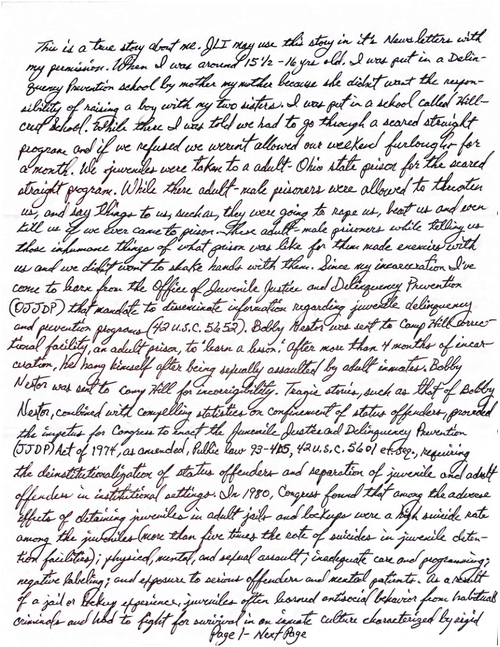 This is a true story about me. JLI may use this story in it's Newsletters with
my permission. When I was around 15½-16 yrs old. I was put in a Delin-
quency Prevention school by mother my mother because she didn't want the respon-
sibility of raising a boy with my two sisters. I was put in a school called Hill-
crest School. While there I was told we had to go through a scared straight
program and if we refused we weren't allowed our weekend furlough for
a month. We juveniles were taken to a adult-Ohio state prison for the scared
straight program. While there adult-male prisoners were allowed to threaten
us, and say things to us, such as, they were going to rape us, beat us and even
kill us if we ever came to prison. These adult-male prisoners while telling us
those inhumane things of what prison was like for them made enemies with
us and we didn't want to shake hands with them. Since my incarceration I've
come to learn from the Office of Juvenile Justice and Delinquency Prevention
(OJJDP) that mandate to disseminate information regarding juvenile delinquency
and prevention programs (42 U.S.C. 5652). Bobby Nestor was sent to Camp Hill correc-
tional facility, an adult prison, to "learn a lesson." After more than 4 months of incar-
ceration, he hang himself after being sexually assaulted by adult inmates. Bobby
Nestor was sent to Camp Hill for incorrigibility. Tragic stories, such as that of Bobby
Nestor, combined with compelling statistics on confinement of status offenders, provided
the impetus for Congress to enact the Juvenile Justice and Delinquency Prevention
(JJDP) Act of 1974, as amended, Public Law 93-415, 42 U.S.C. 5601 et seq., requiring
the deinstitutionalization of status offenders and separation of juvenile and adult
offenders in institutional settings. In 1980, Congress found that among the adverse
effects of detaining juveniles in adult jails and lockups were a high suicide rate
among the juveniles (more than five times the rate of suicides in juvenile deten-
tion facilities); physical, mental, and sexual assault; inadequate care and programming;
negative labeling; and exposure to serious offenders and mental patients. As a result
of a jail or lockup experience, juveniles often learned antisocial behavior from habitual
criminals and had to fight for survival in an inmate culture characterized by rigid
Page 1- Next Page